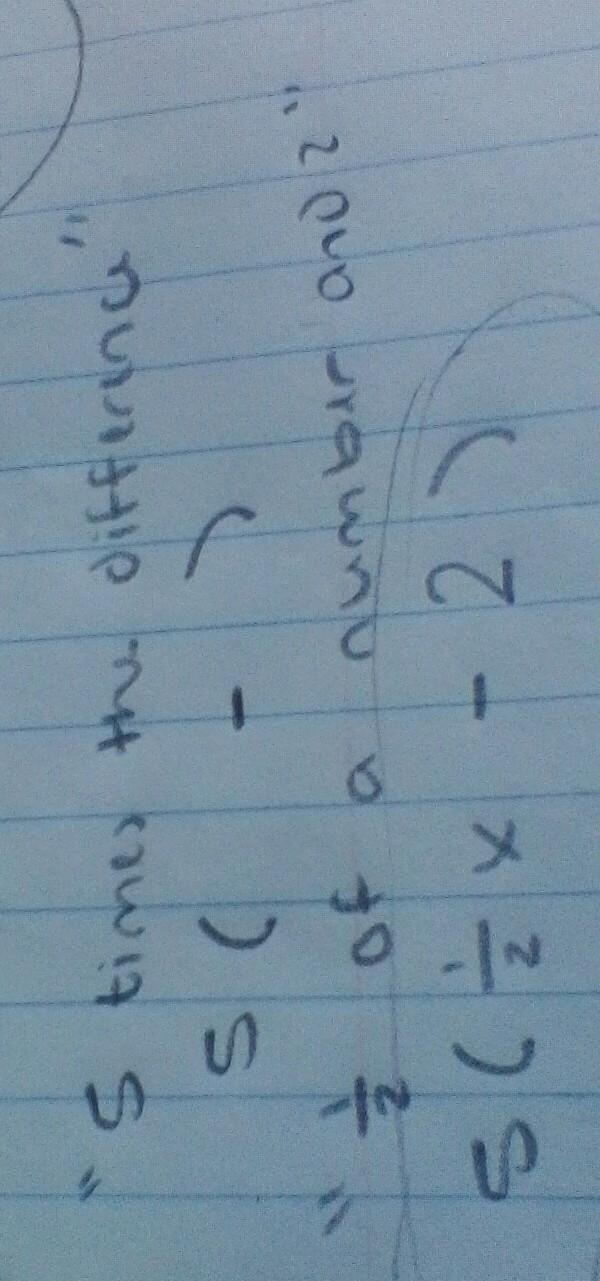 "5 times the difference"
5 ( - )
"½ of a number and 2"
5 ( ½ x - 2 )